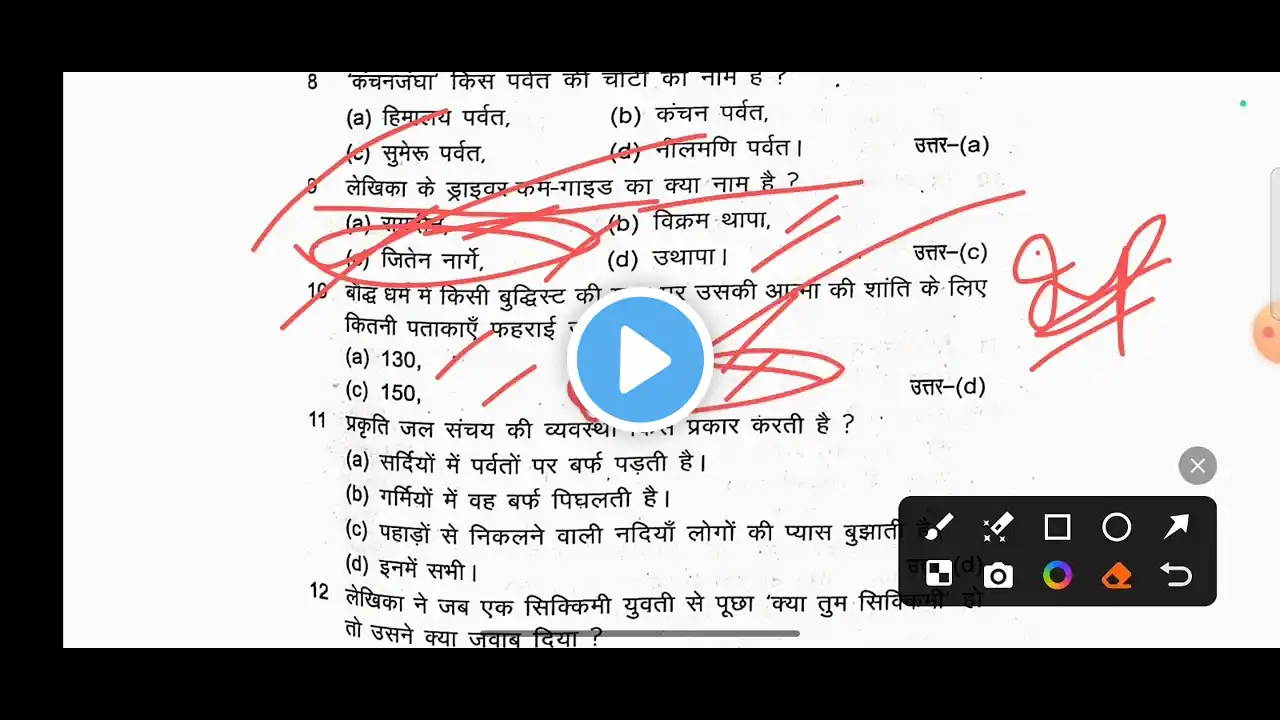 8 'कंचनजंघा' किस पर्वत की चोटी का नाम है ?
(a) हिमालय पर्वत, (b) कंचन पर्वत,
(c) सुमेरू पर्वत, (d) नीलमणि पर्वत। उत्तर–(a)
9 लेखिका के ड्राइवर-कम-गाइड का क्या नाम है ?
(a) (b) विक्रम थापा,
(c) जितेन नार्गे, (d) उथापा। उत्तर–(c)
10 बौद्ध धर्म में किसी बुद्धिस्ट की पर उसकी आत्मा की शांति के लिए
कितनी पताकाएँ फहराई
(a) 130,
(c) 150, उत्तर–(d)
11 प्रकृति जल संचय की व्यवस्था किस प्रकार करती है ?
(a) सर्दियों में पर्वतों पर बर्फ पड़ती है।
(b) गर्मियों में वह बर्फ पिघलती है।
(c) पहाड़ों से निकलने वाली नदियाँ लोगों की प्यास बुझाती है।
(d) इनमें सभी। (d)
12 लेखिका ने जब एक सिक्किमी युवती से पूछा 'क्या तुम सिक्किमी' हो
तो उसने क्या जवाब दिया ?